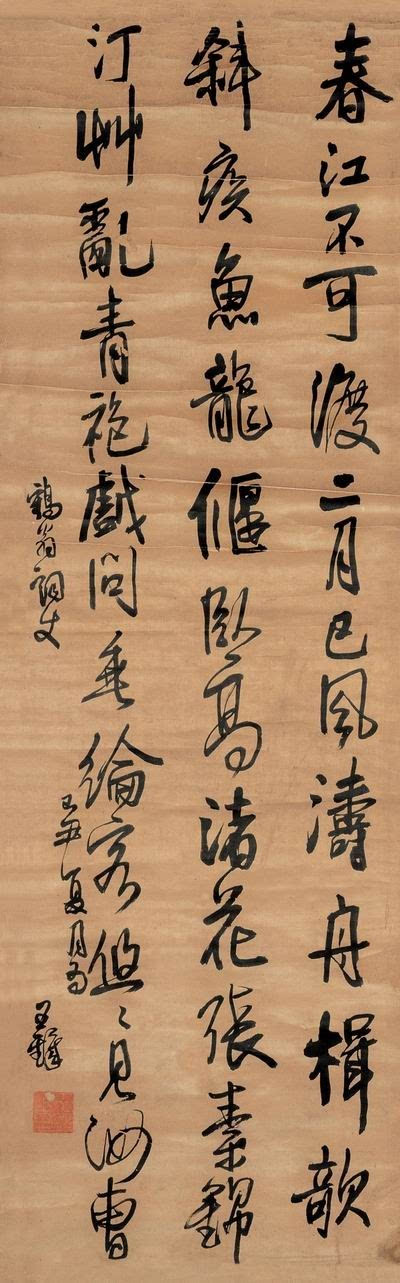 春江不可渡二月已風濤舟楫欹
斜疾魚龍偃臥高渚花張素錦
汀艸亂青袍戲問垂綸客悠〻見汝曹
鶴翁詞丈
丑夏月
王鐸